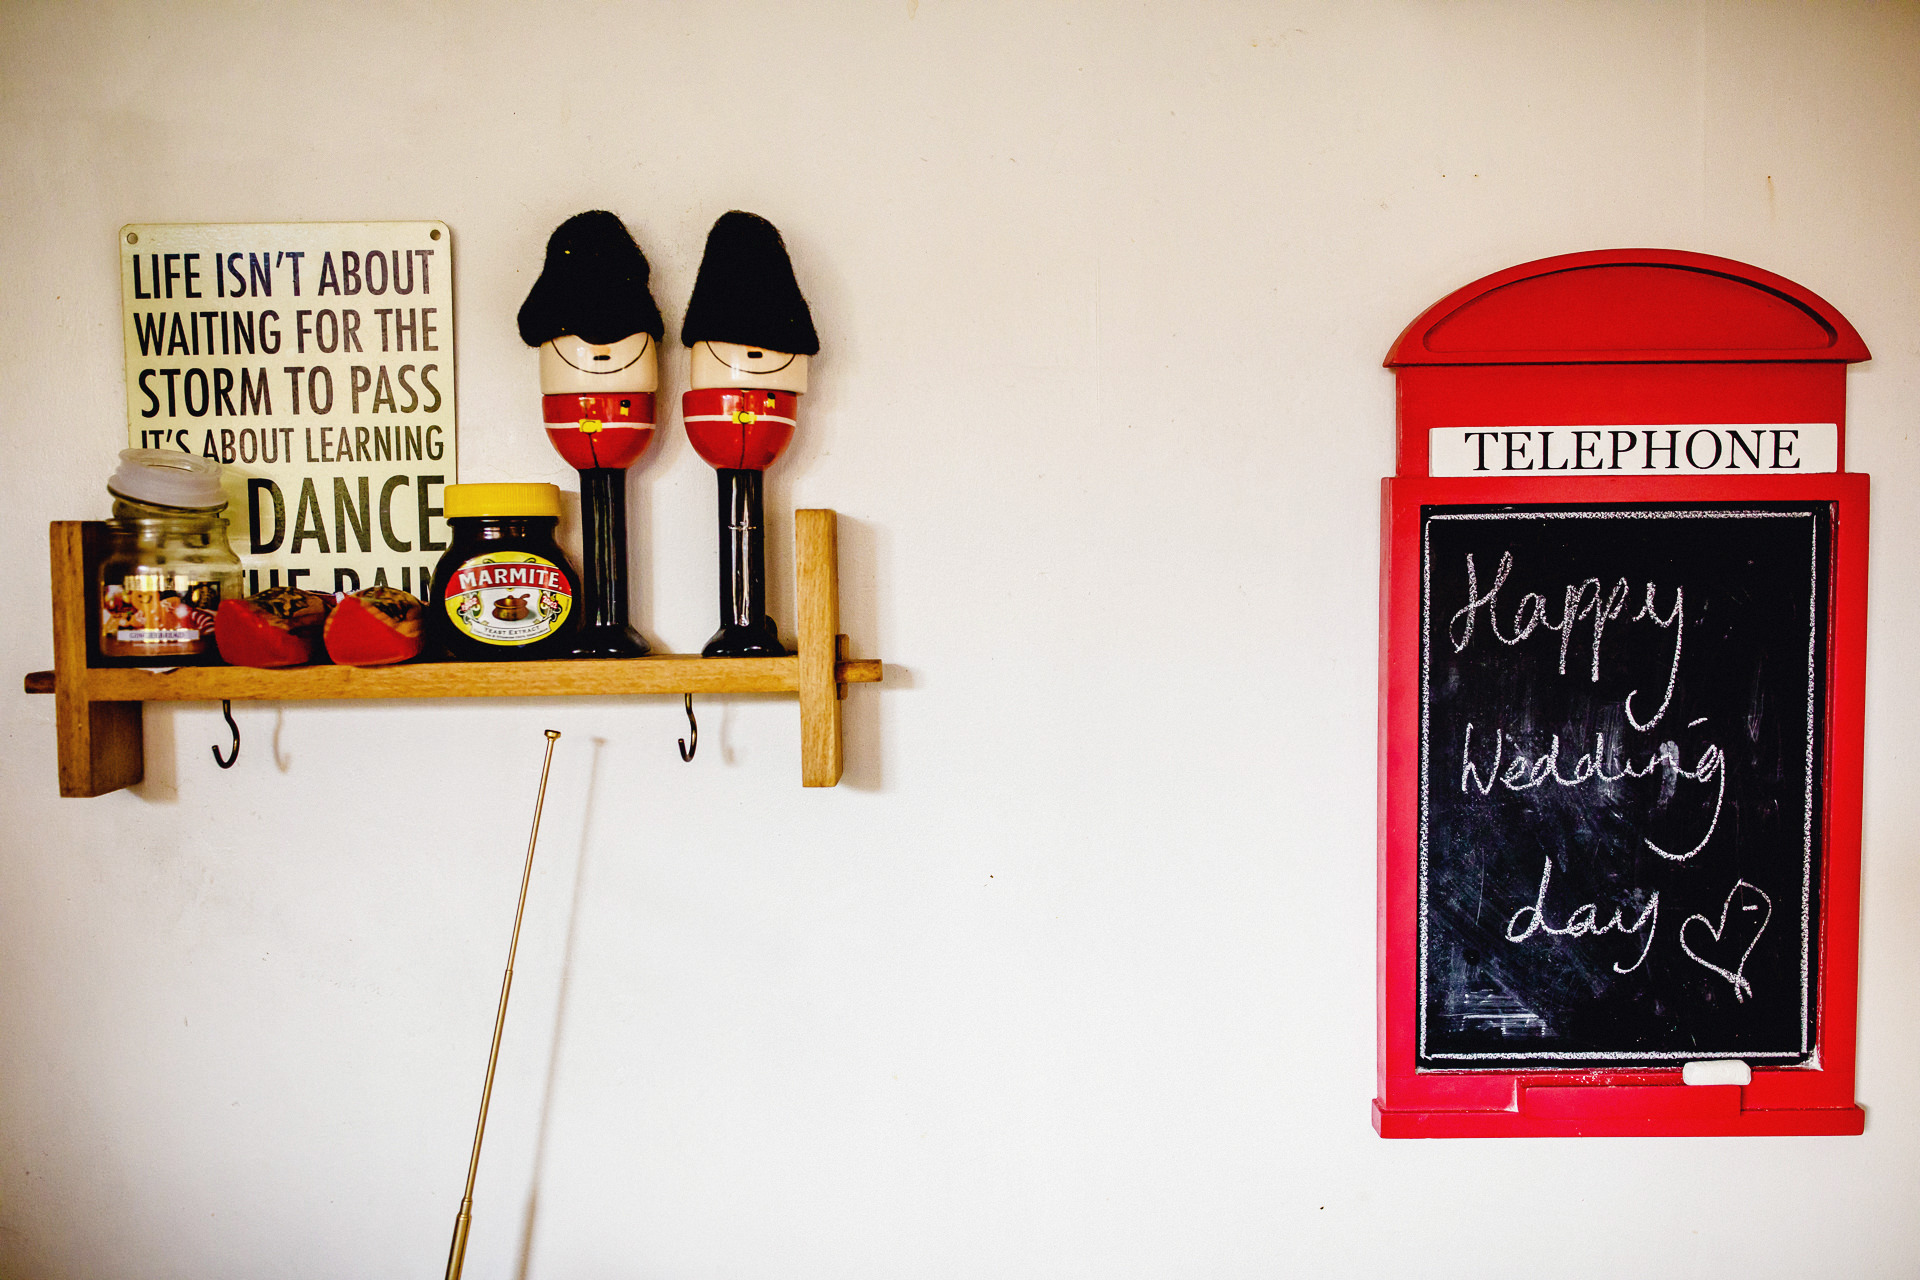 LIFE ISN'T ABOUT
WAITING FOR THE
STORM TO PASS
IT'S ABOUT LEARNING
DANCE
THE RAIN
MARMITE
YEAST EXTRACT
GINGERBREAD
TELEPHONE
Happy
Wedding
day